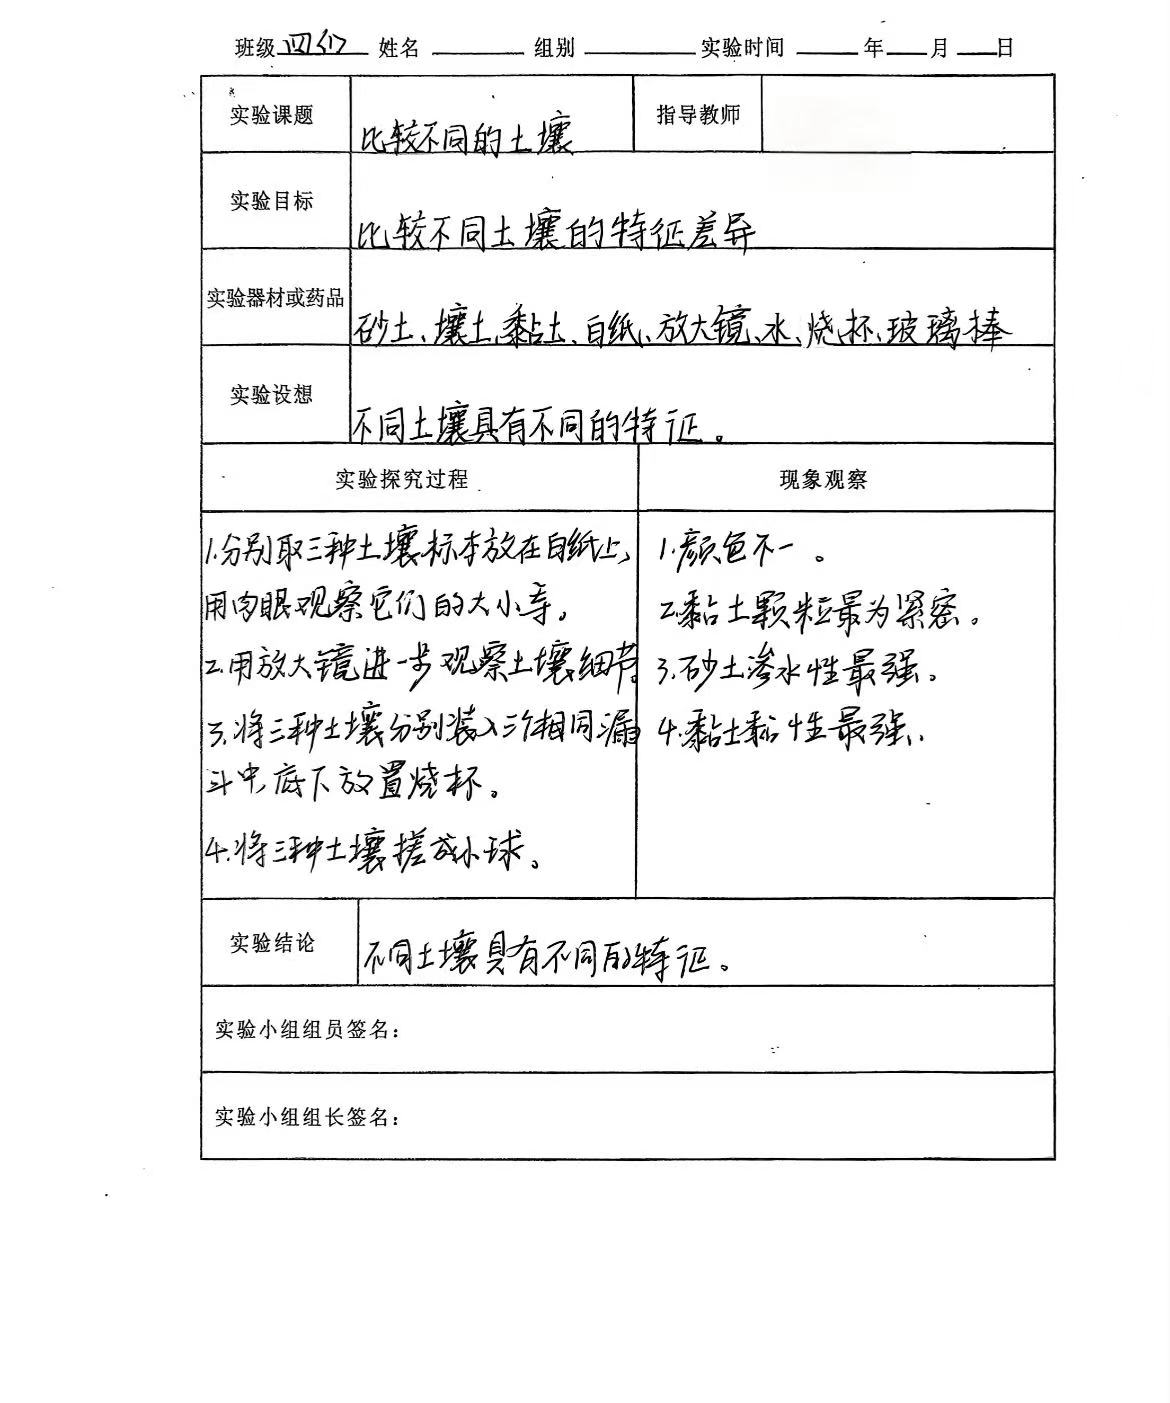 班级 四(1) 姓名 组别 实验时间 年 月 日
实验课题 比较不同的土壤 指导教师
实验目标 比较不同土壤的特征差异
实验器材或药品 砂土、壤土、黏土、白纸、放大镜、水、烧杯、玻璃棒
实验设想 不同土壤具有不同的特征。
实验探究过程 现象观察
1.分别取三种土壤标本放在白纸上,
用肉眼观察它们的大小等。
2.用放大镜进一步观察土壤细节。
3.将三种土壤分别装入三个相同漏
斗中,底下放置烧杯。
4.将三种土壤搓成小球。
1.颜色不一。
2.黏土颗粒最为紧密。
3.砂土渗水性最强。
4.黏土黏性最强.
实验结论 不同土壤具有不同的特征。
实验小组组员签名:
实验小组组长签名: